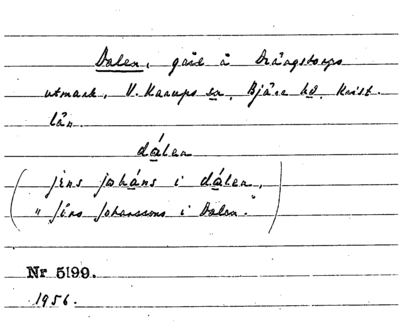 Dalen, gård å Drängstorps
utmark, V. Karups sn, Bjäre hd, Krist.
län.
dálen
(jèns johàns i dálen,
"Jöns Johanssons i Dalen.")
Nr 5199.
1956.